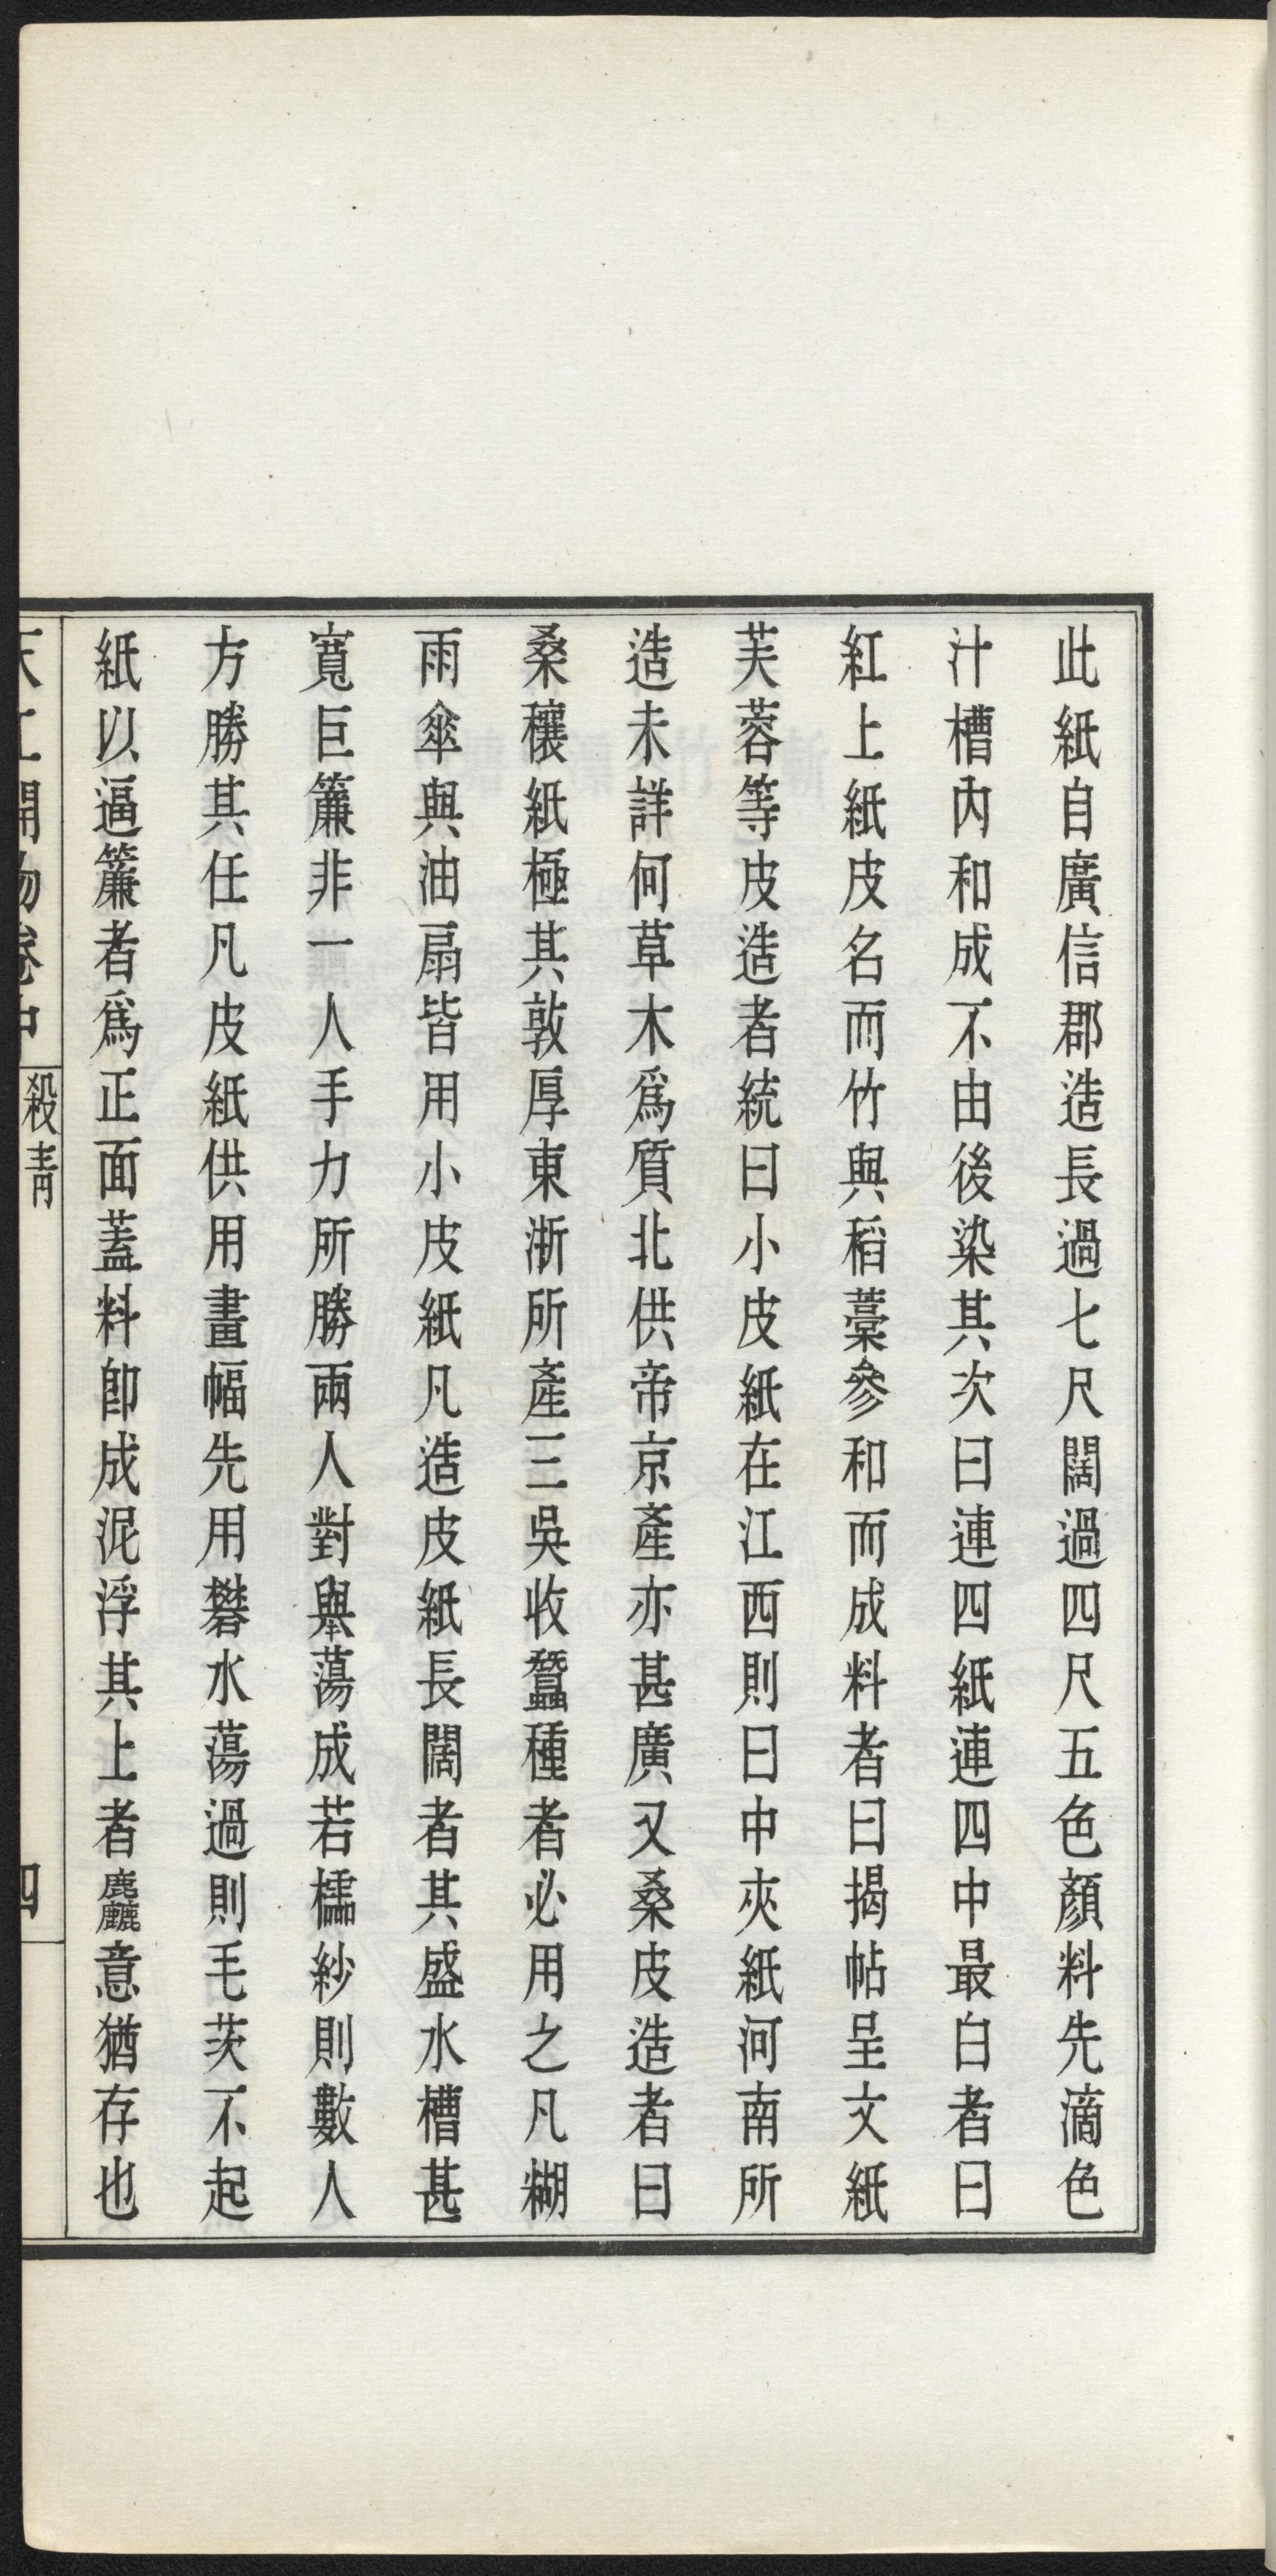 此紙自廣信郡造長過七尺闊過四尺五色顏料先滴色
汁槽內和成不由後染其次曰連四紙連四中最白者曰
紅上紙皮名而竹與稻藁參和而成料者曰揭帖呈文紙
芙蓉等皮造者統曰小皮紙在江西則曰中夾紙河南所
造未詳何草木爲質北供帝京產亦甚廣又桑皮造者曰
桑穰紙極其敦厚東浙所產三吳收蠶種者必用之凡糊
雨傘與油扇皆用小皮紙凡造皮紙長闊者其盛水槽甚
寬巨簾非一人手力所勝兩人對舉蕩成若櫺紗則數人
方勝其任凡皮紙供用畫幅先用礬水蕩過則毛茨不起
紙以逼簾者爲正面蓋料卽成泥浮其上者麤意猶存也
天工開物卷中
殺青
四